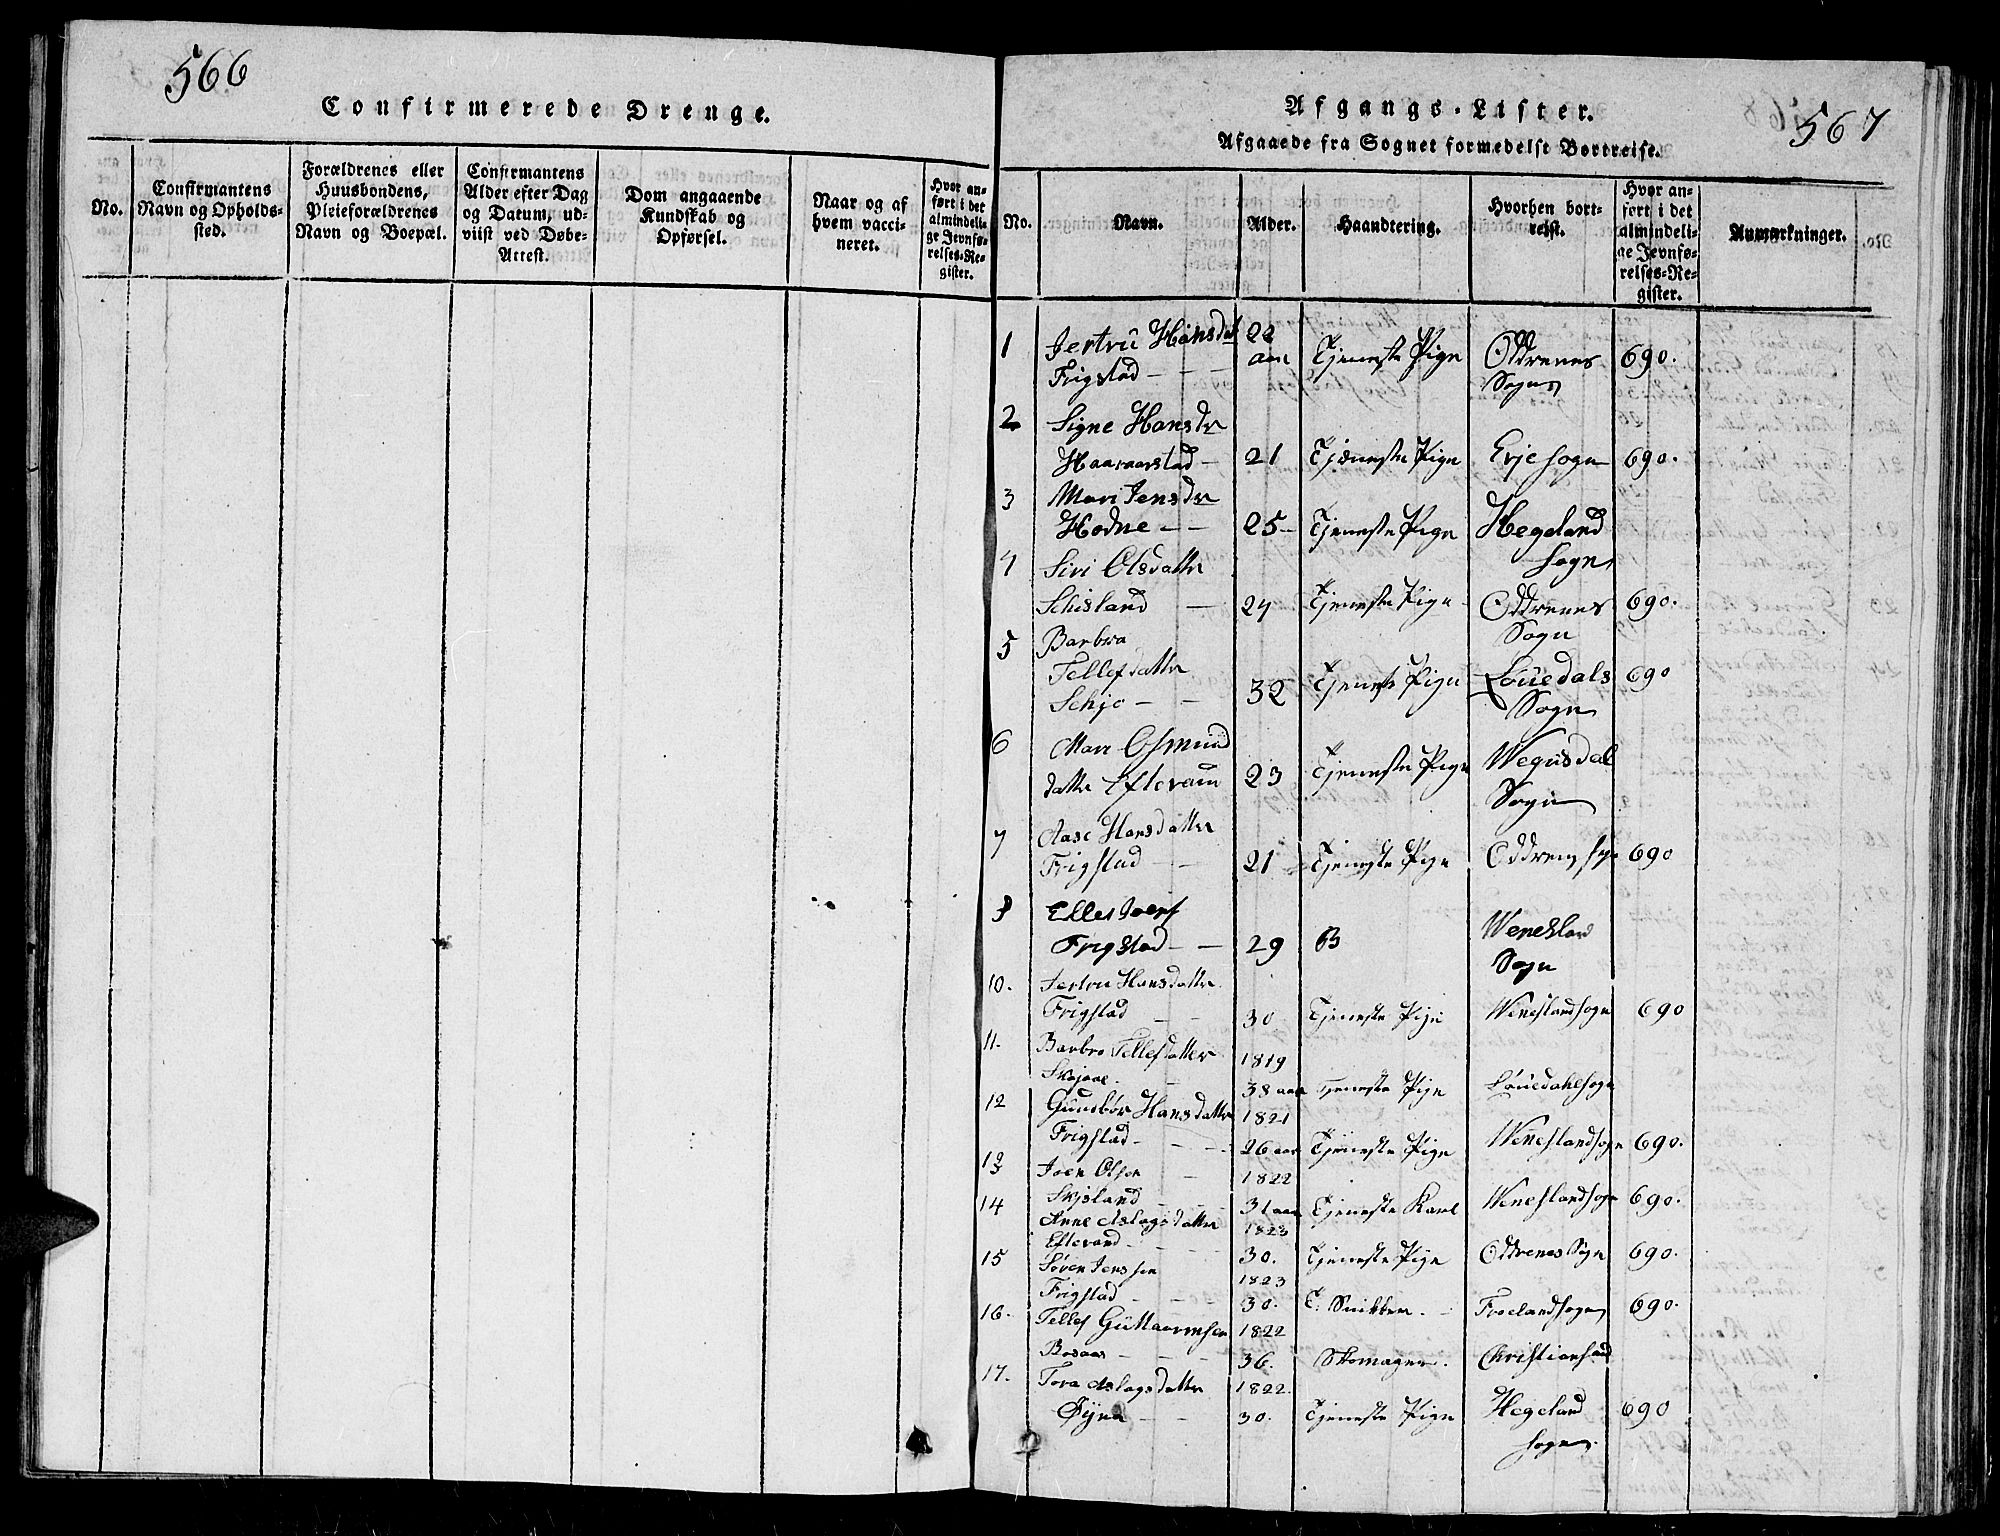 566
Confirmerede Drenge.
No.
Confirmantens
Navn og Opholds-
sted.
Forældrenes eller
Huusbondens,
Pleieforældrenes
Navn og Boepæl.
Confirmantens
Alder efter Dag
og Datum, ud-
viist ved Døbe-
Attest.
Dom angaaende
Kundskab og
Opførsel.
Naar og af
hvem vacci-
neret.
Hvor an-
ført i det
almindeli-
ge Jevnfø-
relses-Re-
gister.
567
Afgangs-Lister.
Afgaaede fra Sognet formedelst Bortreise.
No.
Navn.
Alder.
Haandtering.
Hvorhen bort-
reist.
Hvor an-
ført i det
almindeli-
ge Jevnfø-
relses-Re-
gister.
Anmærkninger.
1 Jertru Hansdat 22
aar Tjeneste Pige Oddrenes 690.
Frigstad - - - Sogn
2 Signe Hansdr
Haaverstad - 21 Tjeneste Pige Evje sogn 690.
3 Mari Jensdr
Hodne - - 25 - Tjeneste Pige Hegeland
sogn
4 Siri Olsdatter
Schisland - 24 Tjeneste Pige Oddrenes 690.
Sogn
5 Barbra
Tellefdatter
Schjo - - 32 Tjeneste Pige Löuedals 690
Sogn
6 Mari Osmund
datter Efteram 23 Tjeneste Pige Wegusdal
Sogn
7 Aase Hansdatter
Frigstad - - 21 Tjeneste Pige Oddrenes 690
8
Frigstad - - 29 Weneslan
Sogn
10. Jertru Hansdatter
Frigstad - - 30 Tjeneste Pige Weneslandsogn 690
11. Barbro Tellefdatter 1819
Skojaae. - 38 aar Tjeneste Pige Löuedahlsogn
12 Gunnbör Hansdatter 1821
Frigstad - - - 26 aar Tjeneste Pige Weneslandsogn 690.
13 Joen Olsen 1822
Skjsland - - 31 aar Tjeneste Karl Weneslandsogn 690.
14 Anne Aslagsdatter 1823
Eftevand - - - 30. Tjeneste Pige Oddrenes Sogn 690.
15 Søren Jenssen 1823
Frigstad - - - 30. Snikker - Froelandsogn 690.
16. Tellef Guttaarmsen 1822
Bosaas - - - 36. Skomager. Christiansand
17. Tora Aslagsdatter 1822.
Øÿna - - 30. Tjeneste Pige Hegeland 690
sogn.